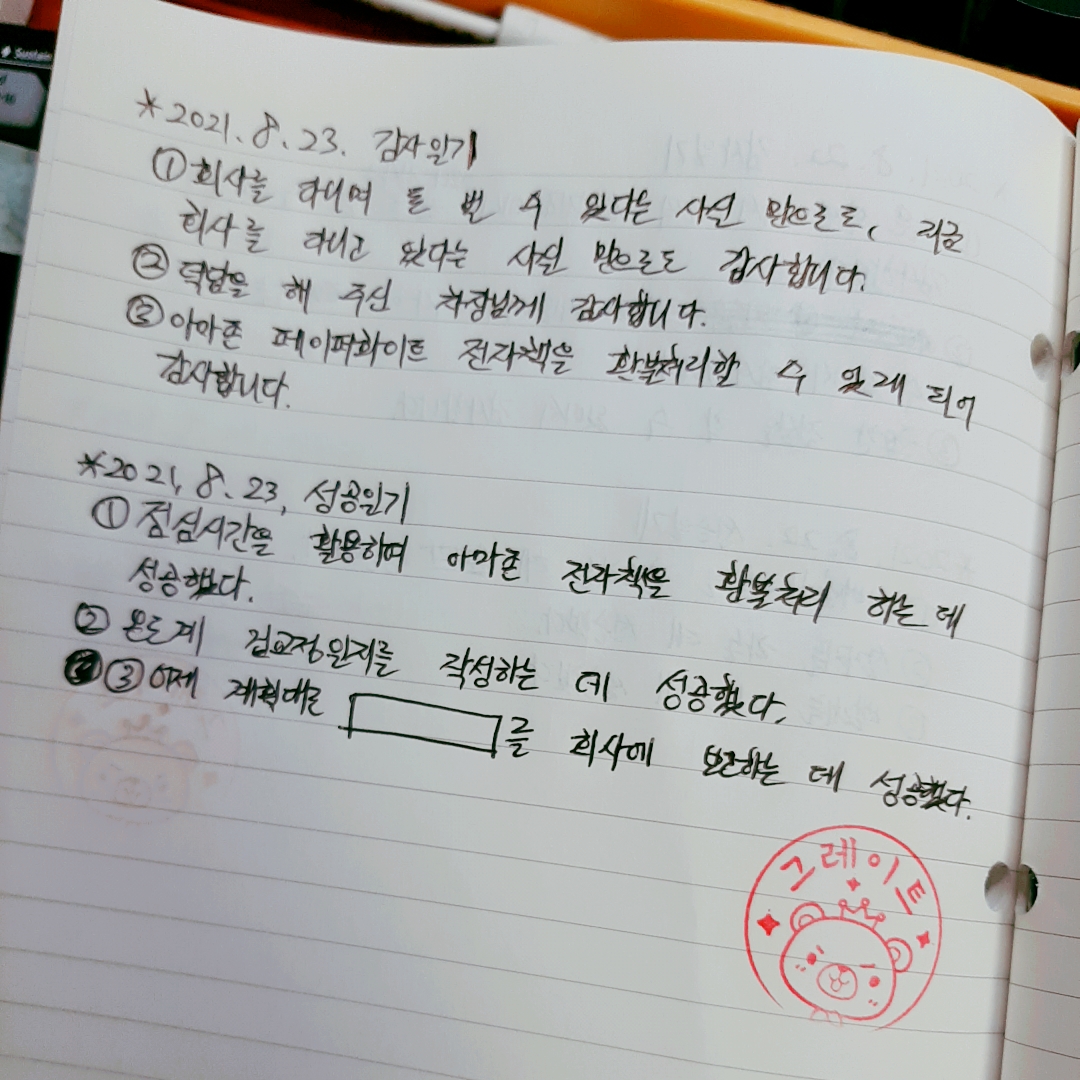 *2021. 8. 23. 감사일기
① 회사를 다니며 돈 벌 수 있다는 사실 만으로도, 지금
회사를 다니고 있다는 사실 만으로도 감사합니다.
② 덕담을 해 주신 차장님께 감사합니다.
③ 아마존 페이퍼화이트 전자책을 환불처리할 수 있게 되어
감사합니다.
*2021. 8. 23. 성공일기
① 점심시간을 활용하여 아마존 전자책을 환불처리 하는 데
성공했다.
② 온도계 검교정일지를 작성하는 데 성공했다.
③ 어제 계획대로 를 회사에 보관하는 데 성공했다.
그레이트